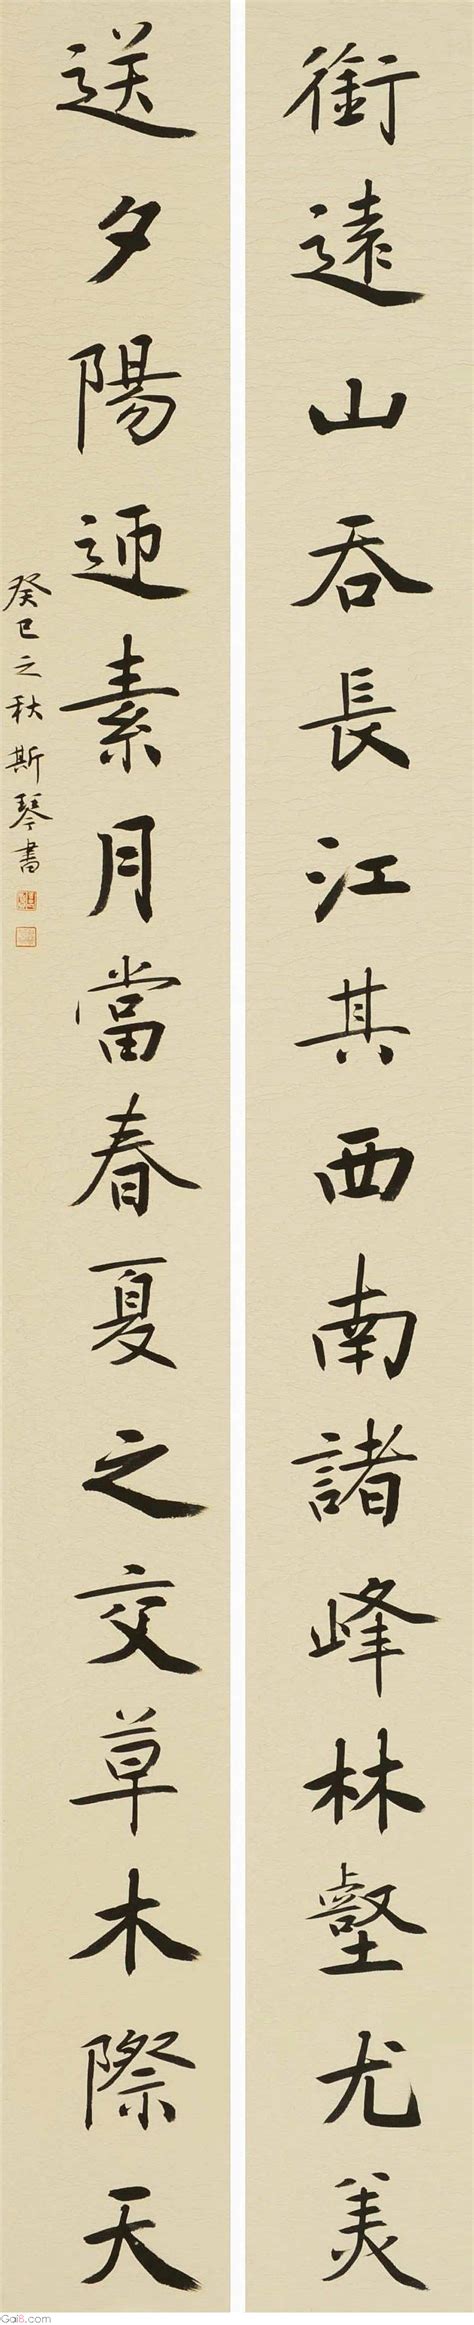 銜遠山吞長江其西南諸峰林壑尤美
送夕陽迎素月當春夏之交草木際天
癸巳之秋斯琴書
Gai8.com